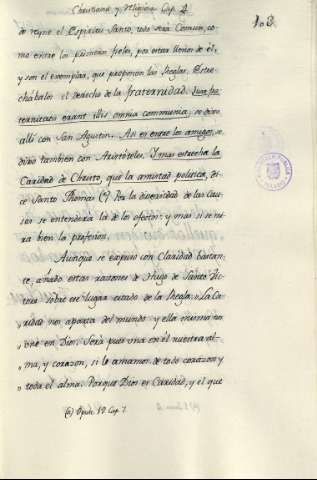 Christiana y Religiosa Cap. 4
103
do reyne el Espiritu Santo, todo será Comun, co-
mo entre los primeros fieles, por estar llenos de él,
y son el exemplar, que proponen las Reglas. Estre-
chábalos el derecho de la fraternidad. Iure fra-
ternitatis erant illis omnia communia, se dixo
allí con San Agustin. Asi es entre los amigos, se
dixo tambien con Aristóteles. Y mas estrecha la
Caridad de Christo, que la amistad politica, di-
ce Santo Thomas (a) Por la diversidad de las cau-
sas se entenderá la de los efectos: y mas si se mi-
ra bien la profesion.
Aunque se expuso con Claridad bastan-
te, añado estas razones de Hugo de Santo Vic-
tore sobre ese lugar citado de la Regla. La Ca-
ridad nos aparta del mundo y ella misma nos
une en Dios. Será pues una en él nuestra al-
ma, y corazon, si le amamos de todo corazon y
toda el alma. Porque Dios es Caridad, y el que
(a) Opusc. 19 Cap. 7.